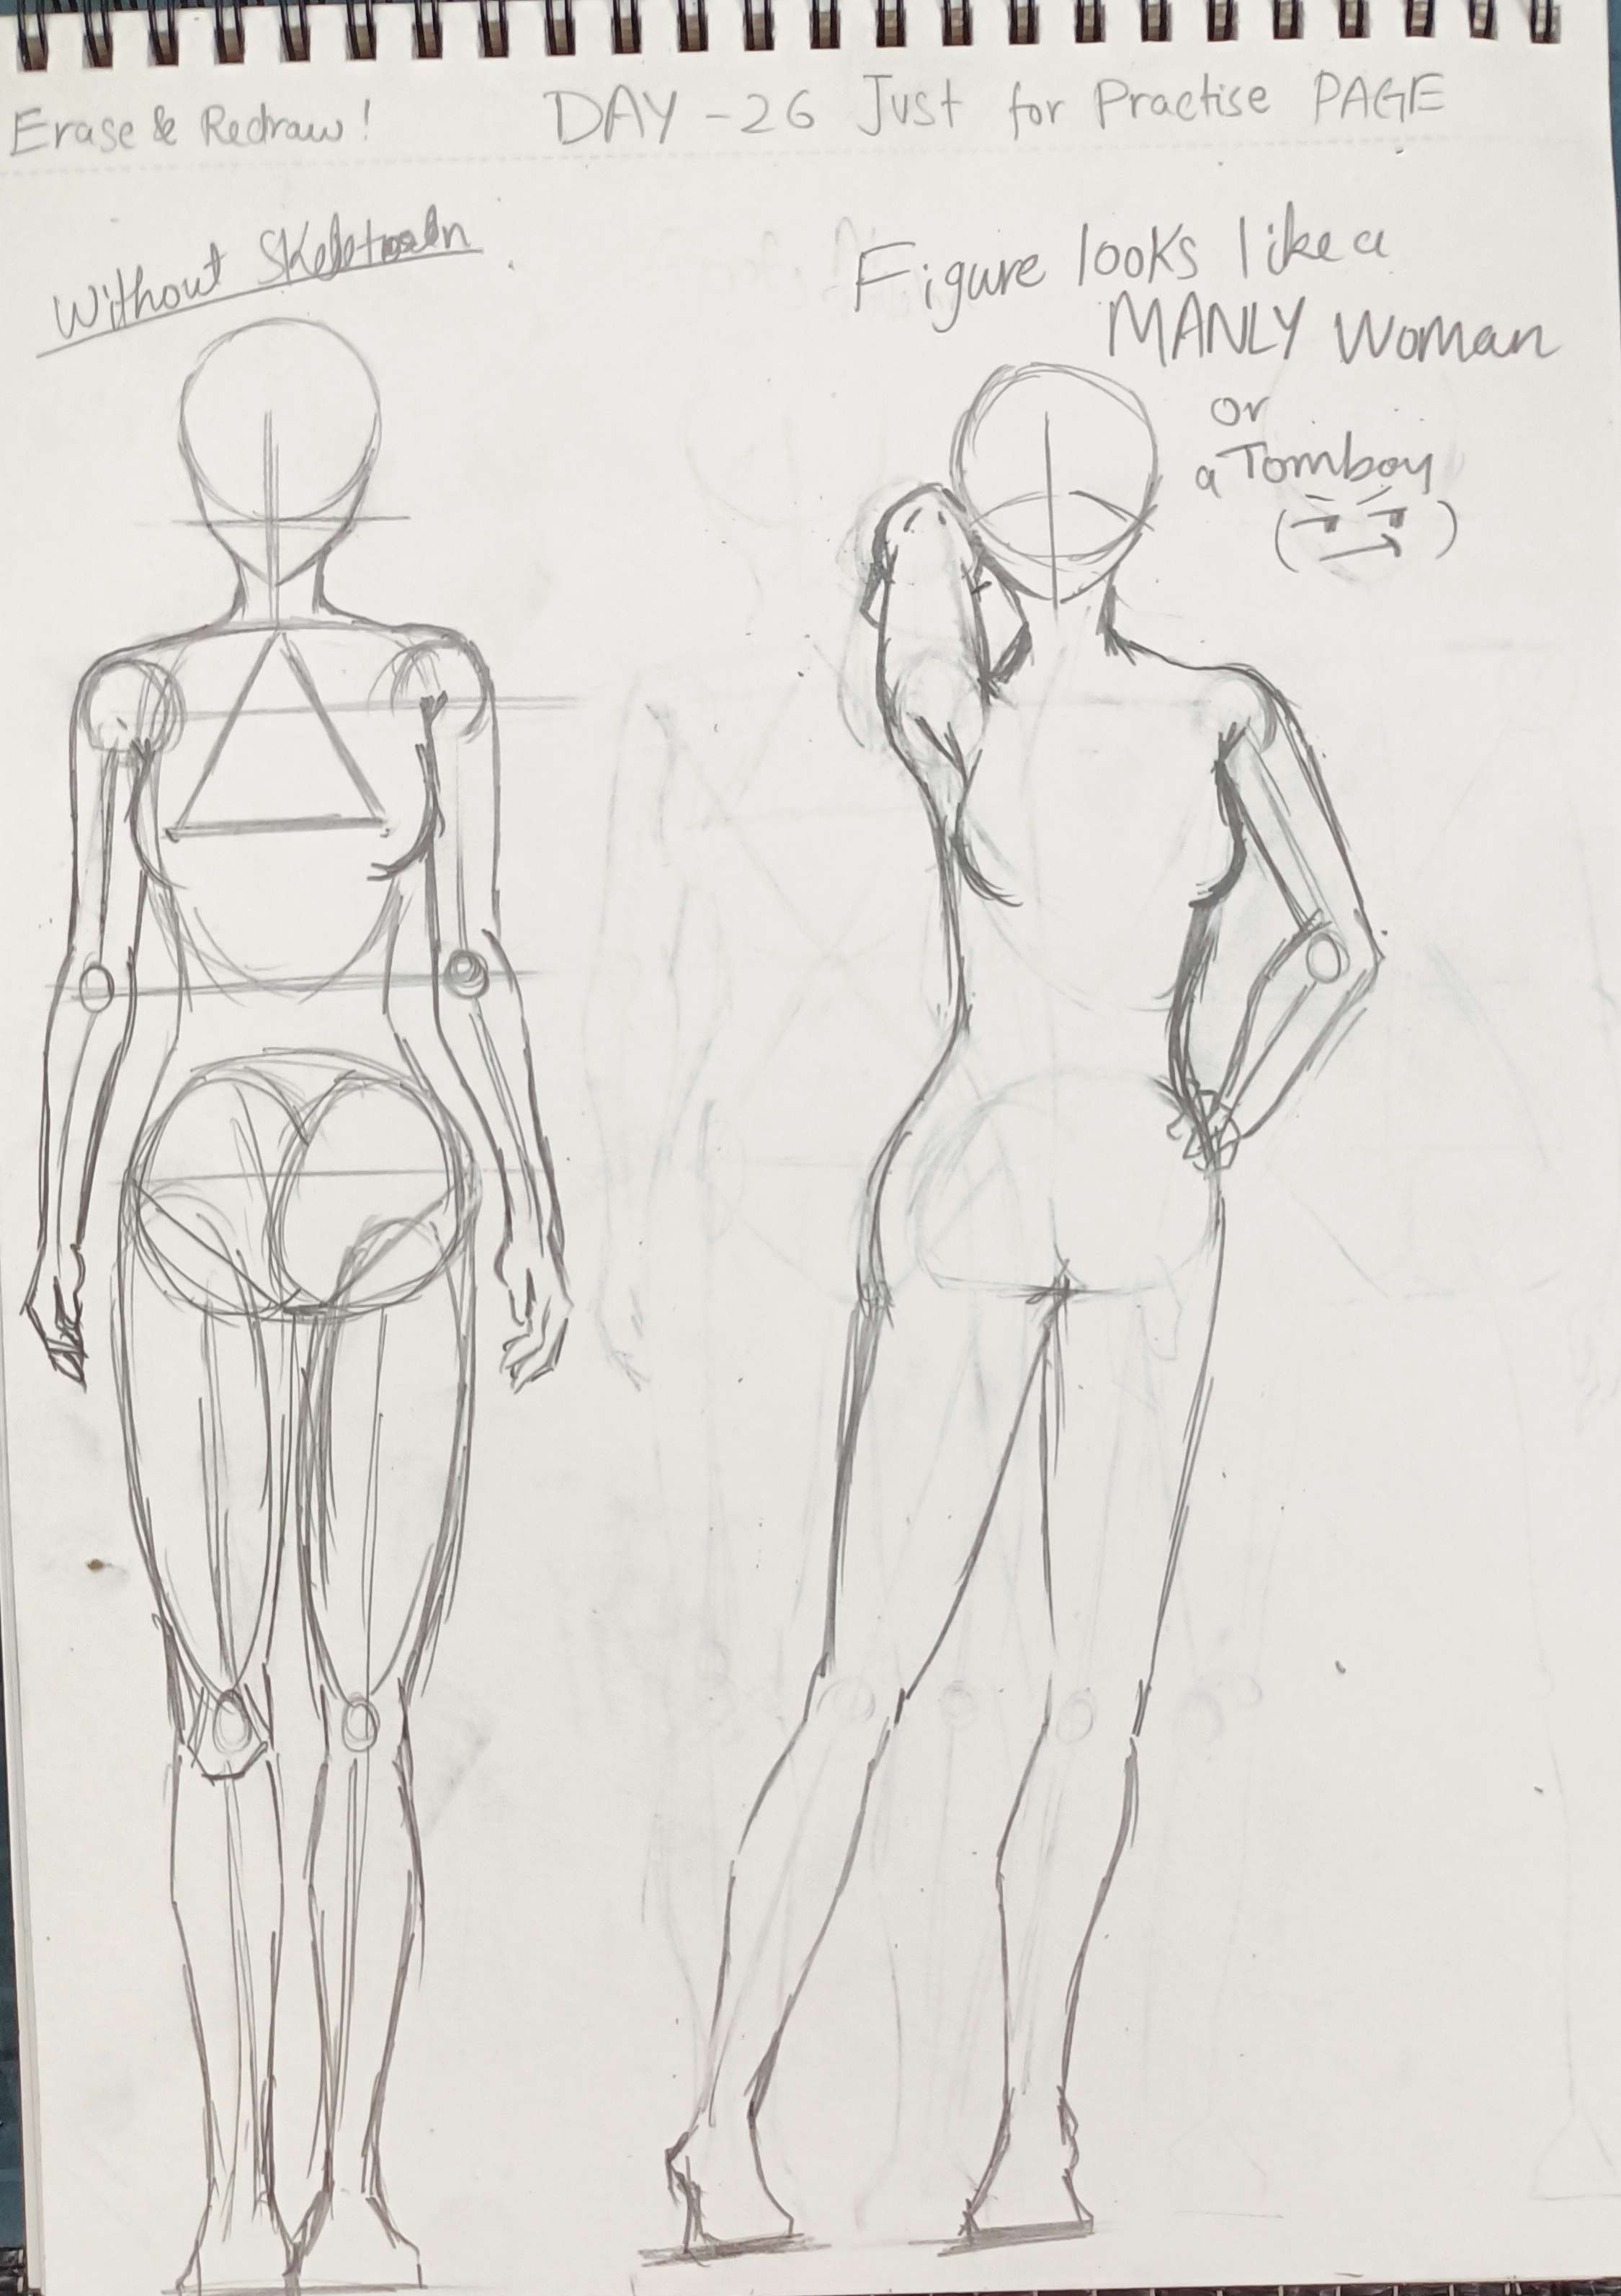 Erase & Redraw!
DAY - 26 Just for Practise PAGE
Without
Figure looks like a
MANLY Woman
or
a Tomboy